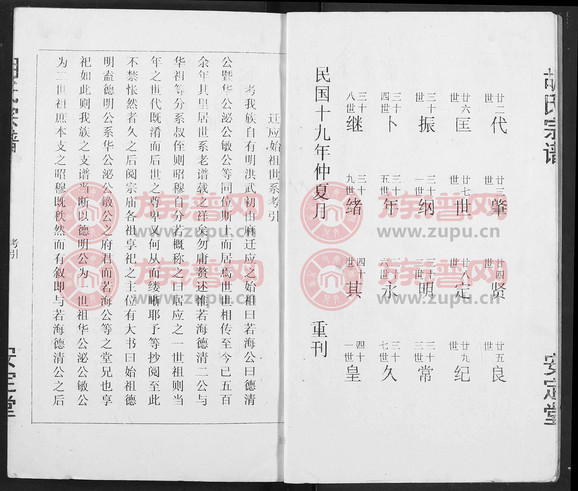 胡氏宗谱
安定堂
廿二世 代
廿三世 肇
廿四世 贤
廿五世 良
廿六世 匡
廿七世 世
廿八世 定
廿九世 纪
三十世 振
三十一世 纲
三十二世 明
三十三世 常
三十四世 卜
三十五世 年
三十六世 永
三十七世 久
三十八世 继
三十九世 绪
四十世 其
四十一世 皇
民国十九年仲夏月 重刊
迁应始祖世系考引
考我族自有明洪武初由麻迁应之始祖曰若海公曰德清
公暨华公泌公敏公等同位斯土而居焉世世相传至今已五百
余年其里居世系老谱载之祥矣勿庸赘述惟若海德清二公与
华祖等分系叔侄则昭穆自分若概称之曰居应之一世祖则当
年之世代既淆而后世之尊卑又何从而缕晰耶予等抄阅至此
不禁怅然者久之后阅宗庙各祖享祀之主位有大书曰始祖德
明盍德明公系华公泌公敏公之府君而若海公等之堂兄也享
祀如此则我族之支谱当断以德明公为一世祖华公泌公敏公
为二世祖庶本支之昭穆既秩然而有叙即与若海德清公之后
考引
安定堂
族普网
www.zupu.cn
族普网
www.zupu.cn
族普网
www.zupu.cn
族普网
www.zupu.cn